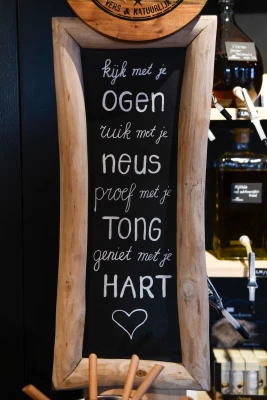 VERS & NATUURLIJK
kijk met je
OGEN
ruik met je
NEUS
proef met je
TONG
geniet met je
HART